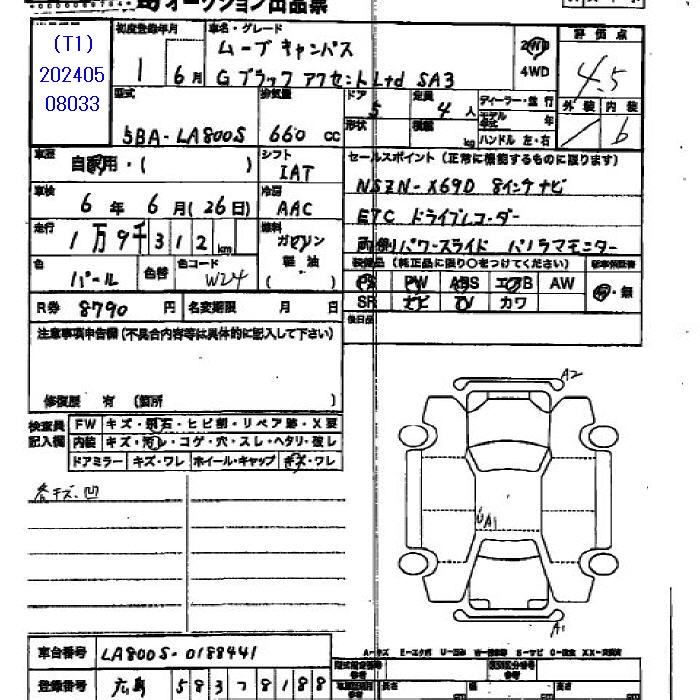 オークション出品票
(T1)
202405
08033
初度登録年月
車名・グレード
ムーブキャンバス
1 6月
Gブラックアクセント Ltd SA3
2WD
4WD
評価点
4.5
外装 内装
6
型式
5BA-LA800S
排気量
660 cc
ドア
5
形状
定員
4人
積載
kg
ディーラー・並行
モデル
年式
年
ハンドル 左・右
車歴
自家用・( )
シフト
IAT
セールスポイント (正常に機能するものに限ります)
車検
6年 6月(26日)
冷房
AAC
NSZN-X69D 8インチナビ
ETC ドライブレコーダー
両側パワースライド パノラマモニター
走行
1万9千312 km
燃料
ガソリン
軽油
( )
色
パール
色替
色コード
W24
装備品 (純正品に限り○をつけてください)
PS PW ABS エアB AW
SR ナビ TV カワ
有・無
R券 8790 円
名変期限 月 日
後日品
注意事項申告欄(不具合内容等は具体的に記入して下さい)
修復歴 有 (箇所 )
検査員
記入欄
FW キズ・飛石・ヒビ割・リペア跡・X要
内装 キズ・汚レ・コゲ・穴・スレ・ヘタリ・破レ
ドアミラー キズ・ワレ ホイール・キャップ キズ・ワレ
各キズ・凹
A2
UA1
A1
車台番号 LA800S-0188441
登録番号 広島 583 ワ 8188
長さ